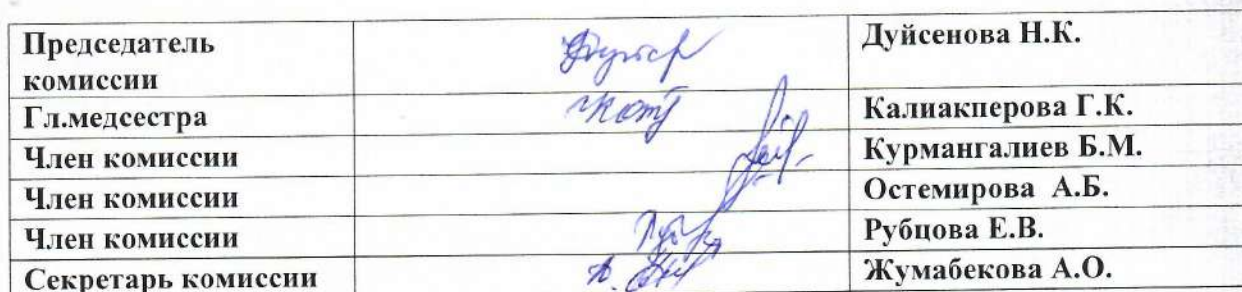 Председатель комиссии Дуйсенова Н.К.
Гл.медсестра Калиакперова Г.К.
Член комиссии Курмангалиев Б.М.
Член комиссии Остемирова А.Б.
Член комиссии Рубцова Е.В.
Секретарь комиссии Жумабекова А.О.